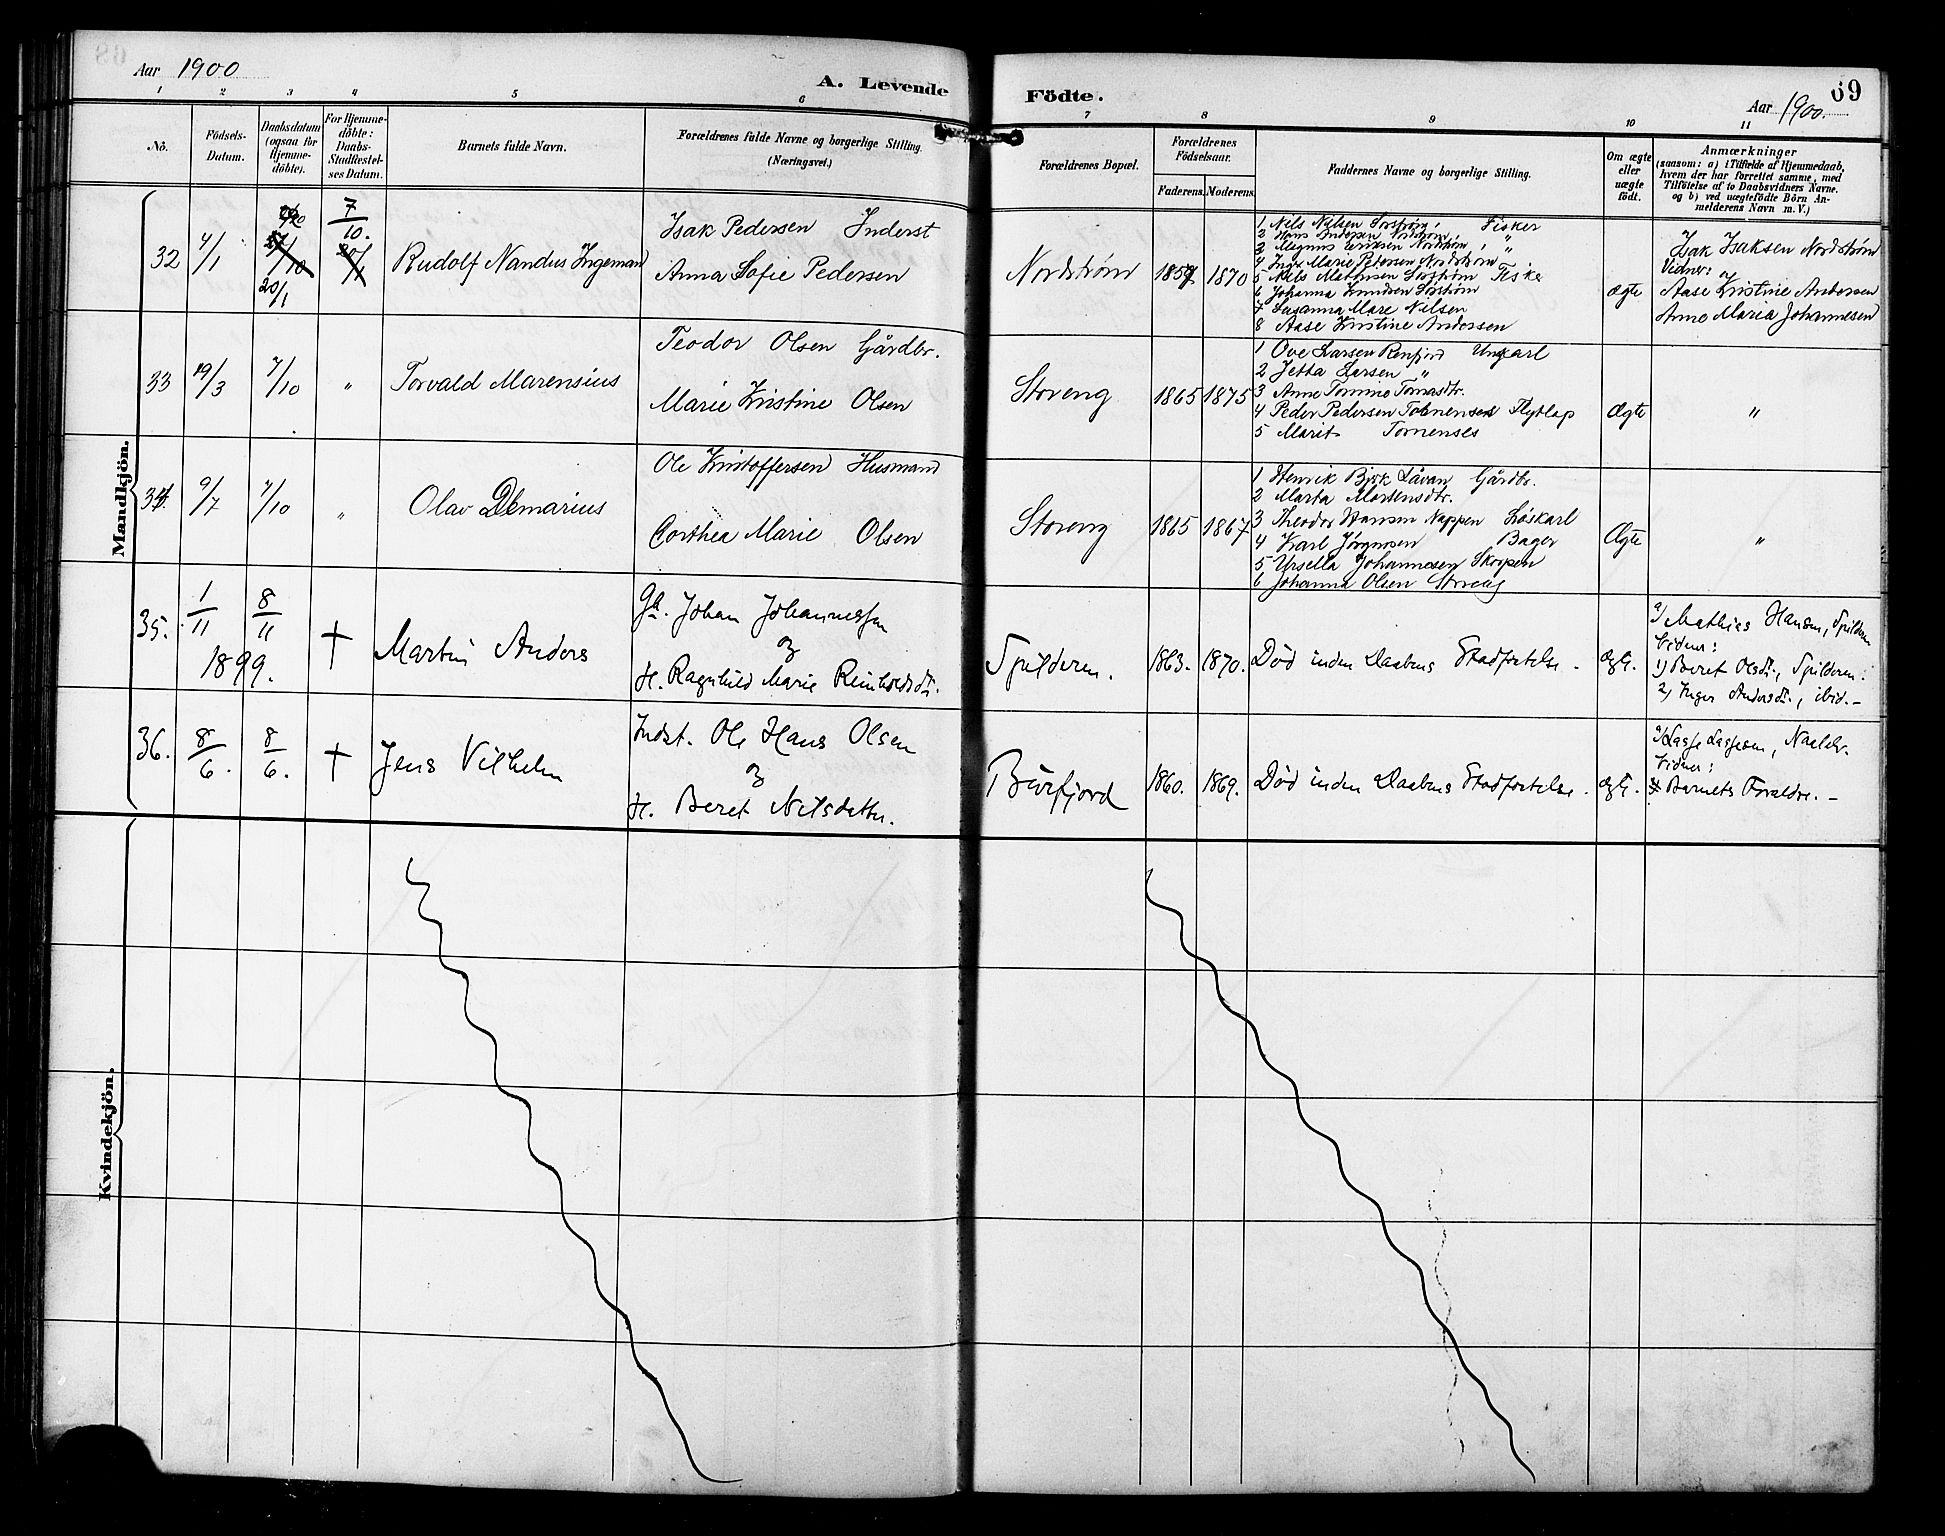 Aar 1900
A. Levende
Födte.
Aar 1900.
69
1 2 3 4 5 6 7 8 9 10 11
No.
Födsels-Datum.
Daabsdatum (ogsaa for Hjemme-döbte).
For Hjemme-döbte: Daabs-Stadfæstel-ses Datum.
Barnets fulde Navn.
Forældrenes fulde Navne og borgerlige Stilling.
(Næringsvei.)
Forældrenes Bopæl.
Forældrenes Födselsaar.
Faderens. Moderens.
Faddernes Navne og borgerlige Stilling.
Om ægte eller uægte födt.
Anmærkninger
(saasom: a) i Tilfælde af Hjemmedaab,
hvem der har forrettet samme, med
Tilföielse af to Daabsvidners Navne.
og b) ved uægtefödte Börn An-
melderens Navn m. V.)
Mandkjön.
32 4/1 20/1 7/10. Rudolf Nandus Ingeman
Isak Pedersen Inderst
Anna Sofie Pedersen
Nordstrøm 1857 1870
1 Nils Nilsen Sørstrøm, Fisker
2 Hans Andersen Nordstrøm, "
3 Magnus Eriksen Nordstrøm, "
4 Inger Marie Petersen Nordstrøm
5 Nils Mathisen Sørstrøm Fisker
6 Johanna Knudsen Sørstrøm
7 Susanna Mare Nilsen
8 Aase Kristine Anderssen
Ægte
Isak Isaksen Nordstrøm
Vidner:
Aase Kristine Andersen
Anne Maria Johannesen
33 19/3 7/10 " Torvald Marensius
Teodor Olsen Gårdbr.
Marie Kristine Olsen
Storeng 1865 1875
1 Ove Larsen Renfjord Ungkarl
2 Jetta Larsen "
3 Anne Tomine Tomasdtr.
4 Peder Pedersen Tornensis Flytlap
5 Marit Tornensis
Ægte
"
34 9/7 7/10 " Olav Demarius
Ole Kristoffersen Husmand
Dorthea Marie Olsen
Storeng 1865 1867
1 Henrik Låvan Gårdbr.
2 Marta Mortensdtr.
3 Theodor Hansen Nappen Løskarl
4 Karl Jørgensen Bager
5 Ursella Johannesen Skorpen
6 Johanna Olsen Storeng
Ægte
"
35. 1/11 8/11 1899. † Martin Anders
Ga. Johan Johannessen
og
H. Ragnhild Marie Reinholdsdtr.
Spilderen. 1863. 1870. Død inden Daabens Stadfæstelse. ægte.
a) Mathias Hansen, Spilderen
Vidner:
1) Beret Olsdtr., Spilderen.
2) Inger Andersdtr., ibid. –
36. 8/6. 8/6. † Jens Vilhelm
Indst. Ole Hans Olsen
og
H. Beret Nilsdatter.
Burfjord 1860. 1869. Død inden Daabens Stadfæstelse. ægte.
a) Lasse Lassesen,
Vidner:
Barnets Forældre. –
Kvindekjön.